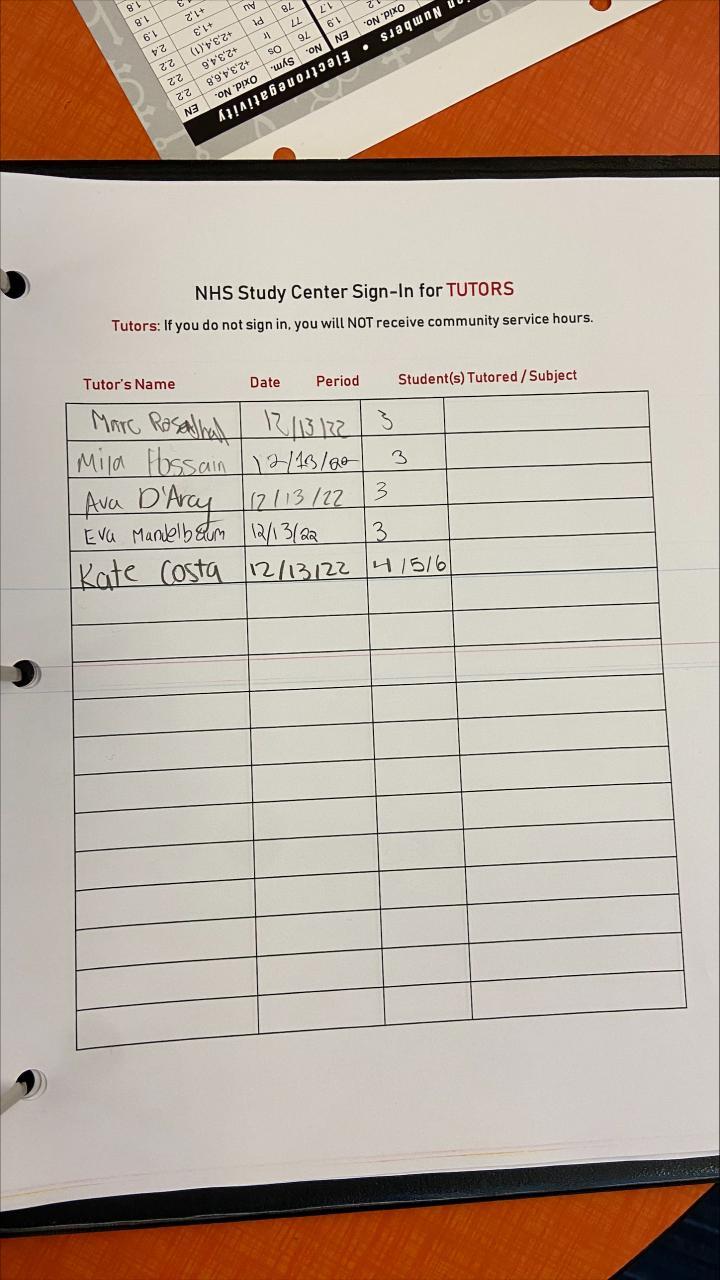 EN 2.2 2.2 2.2 2.4 1.9 1.8 1.8
Oxid. No. +2,3,4,6,8 +2,3,4,6 +2,3,4,(1) +1,3 +1,2
No. Sym. 76 Os 77 Ir 78 Pt Au
EN 1.9 1.7
Oxid. No.
Electronegativity • on Numbers
NHS Study Center Sign-In for TUTORS
Tutors: If you do not sign in, you will NOT receive community service hours.
Tutor's Name Date Period Student(s) Tutored / Subject
Marc 12/13/22 3
Mila Hossain 12/13/22 3
Ava D'Arcy 12/13/22 3
Eva Mandelbaum 12/13/22 3
Kate Costa 12/13/22 4/5/6